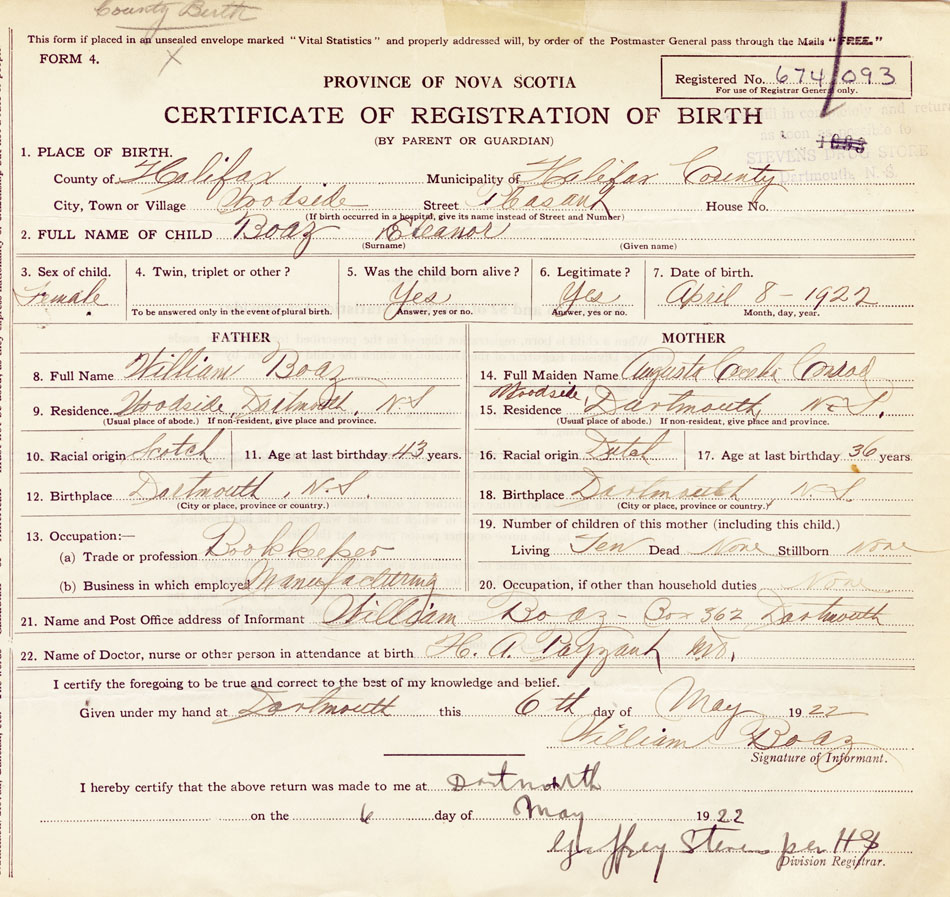 County Birth
This form if placed in an unsealed envelope marked "Vital Statistics" and properly addressed will, by order of the Postmaster General pass through the Mails "FREE."
FORM 4. X
PROVINCE OF NOVA SCOTIA
Registered No. 674/093
For use of Registrar General only.
CERTIFICATE OF REGISTRATION OF BIRTH
(BY PARENT OR GUARDIAN)
and return
as soon as possible to
STEVENS DRUG STORE
Dartmouth, N. S.
1. PLACE OF BIRTH.
County of Halifax Municipality of Halifax County
City, Town or Village Woodside Street Pleasant House No.
(If birth occurred in a hospital, give its name instead of Street and Number)
2. FULL NAME OF CHILD Boaz Eleanor
(Surname) (Given name)
3. Sex of child. 4. Twin, triplet or other? 5. Was the child born alive? 6. Legitimate? 7. Date of birth.
Female Yes Yes April 8 - 1922
To be answered only in the event of plural birth. Answer, yes or no. Answer, yes or no. Month, day, year.
FATHER MOTHER
8. Full Name William Boaz 14. Full Maiden Name Augusta Conrod
Woodside,
9. Residence. Woodside, Dartmouth, N.S 15. Residence Dartmouth, N.S.
(Usual place of abode.) If non-resident, give place and province. (Usual place of abode.) If non-resident, give place and province.
10. Racial origin Scotch 11. Age at last birthday 43 years. 16. Racial origin Dutch 17. Age at last birthday 36 years
12. Birthplace Dartmouth, N.S. 18. Birthplace Dartmouth, N.S.
(City or place, province or country.) (City or place, province or country.)
13. Occupation:— 19. Number of children of this mother (including this child.)
(a) Trade or profession Bookkeeper Living Ten Dead None Stillborn None
(b) Business in which employed Manufacturing 20. Occupation, if other than household duties None
21. Name and Post Office address of Informant William Boaz - Box 362 Dartmouth
22. Name of Doctor, nurse or other person in attendance at birth H. A. Payzant MD.
I certify the foregoing to be true and correct to the best of my knowledge and belief.
Given under my hand at Dartmouth this 6th day of May 1922
William Boaz
Signature of Informant.
I hereby certify that the above return was made to me at Dartmouth
on the 6 day of May 1922
Geoffrey Stevens per HS
Division Registrar.